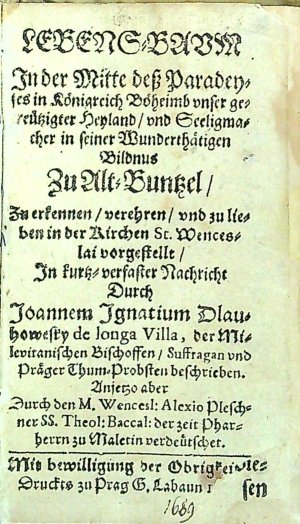 LEBENS-BAUM
In der Mitte deß Paradey-
ses in Königreich Böheimb vnser ge-
creützigter Heyland / vnd Seeligma-
cher in seiner Wunderthätigen
Bildnus
Zu Alt-Buntzel /
Zu erkennen / verehren / vnd zu lie-
ben in der Kirchen St. Wences-
lai vorgestellt /
In kurtz-verfaster Nachricht
Durch
Joannem Ignatium Dlau-
howesky de longa Villa, der Mi-
levitanischen Bischoffen / Suffragan vnd
Präger Thum-Probsten beschrieben.
Anjetzo aber
Durch den M. Wencesl: Alexio Plesch-
ner SS. Theol: Baccal: der zeit Phar-
herrn zu Maletin verdeütschet.
Mit bewilligung der Obrigkei
Druckts zu Prag G. Labaun
sen
1689